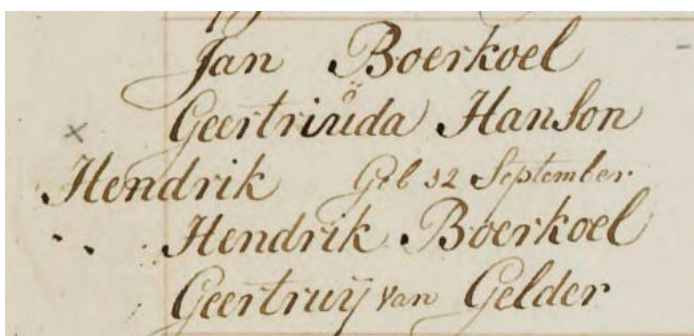 Jan Boerkoel
Geertriuda Hanson
Hendrik Geb 12 September
Hendrik Boerkoel
Geertruij van Gelder